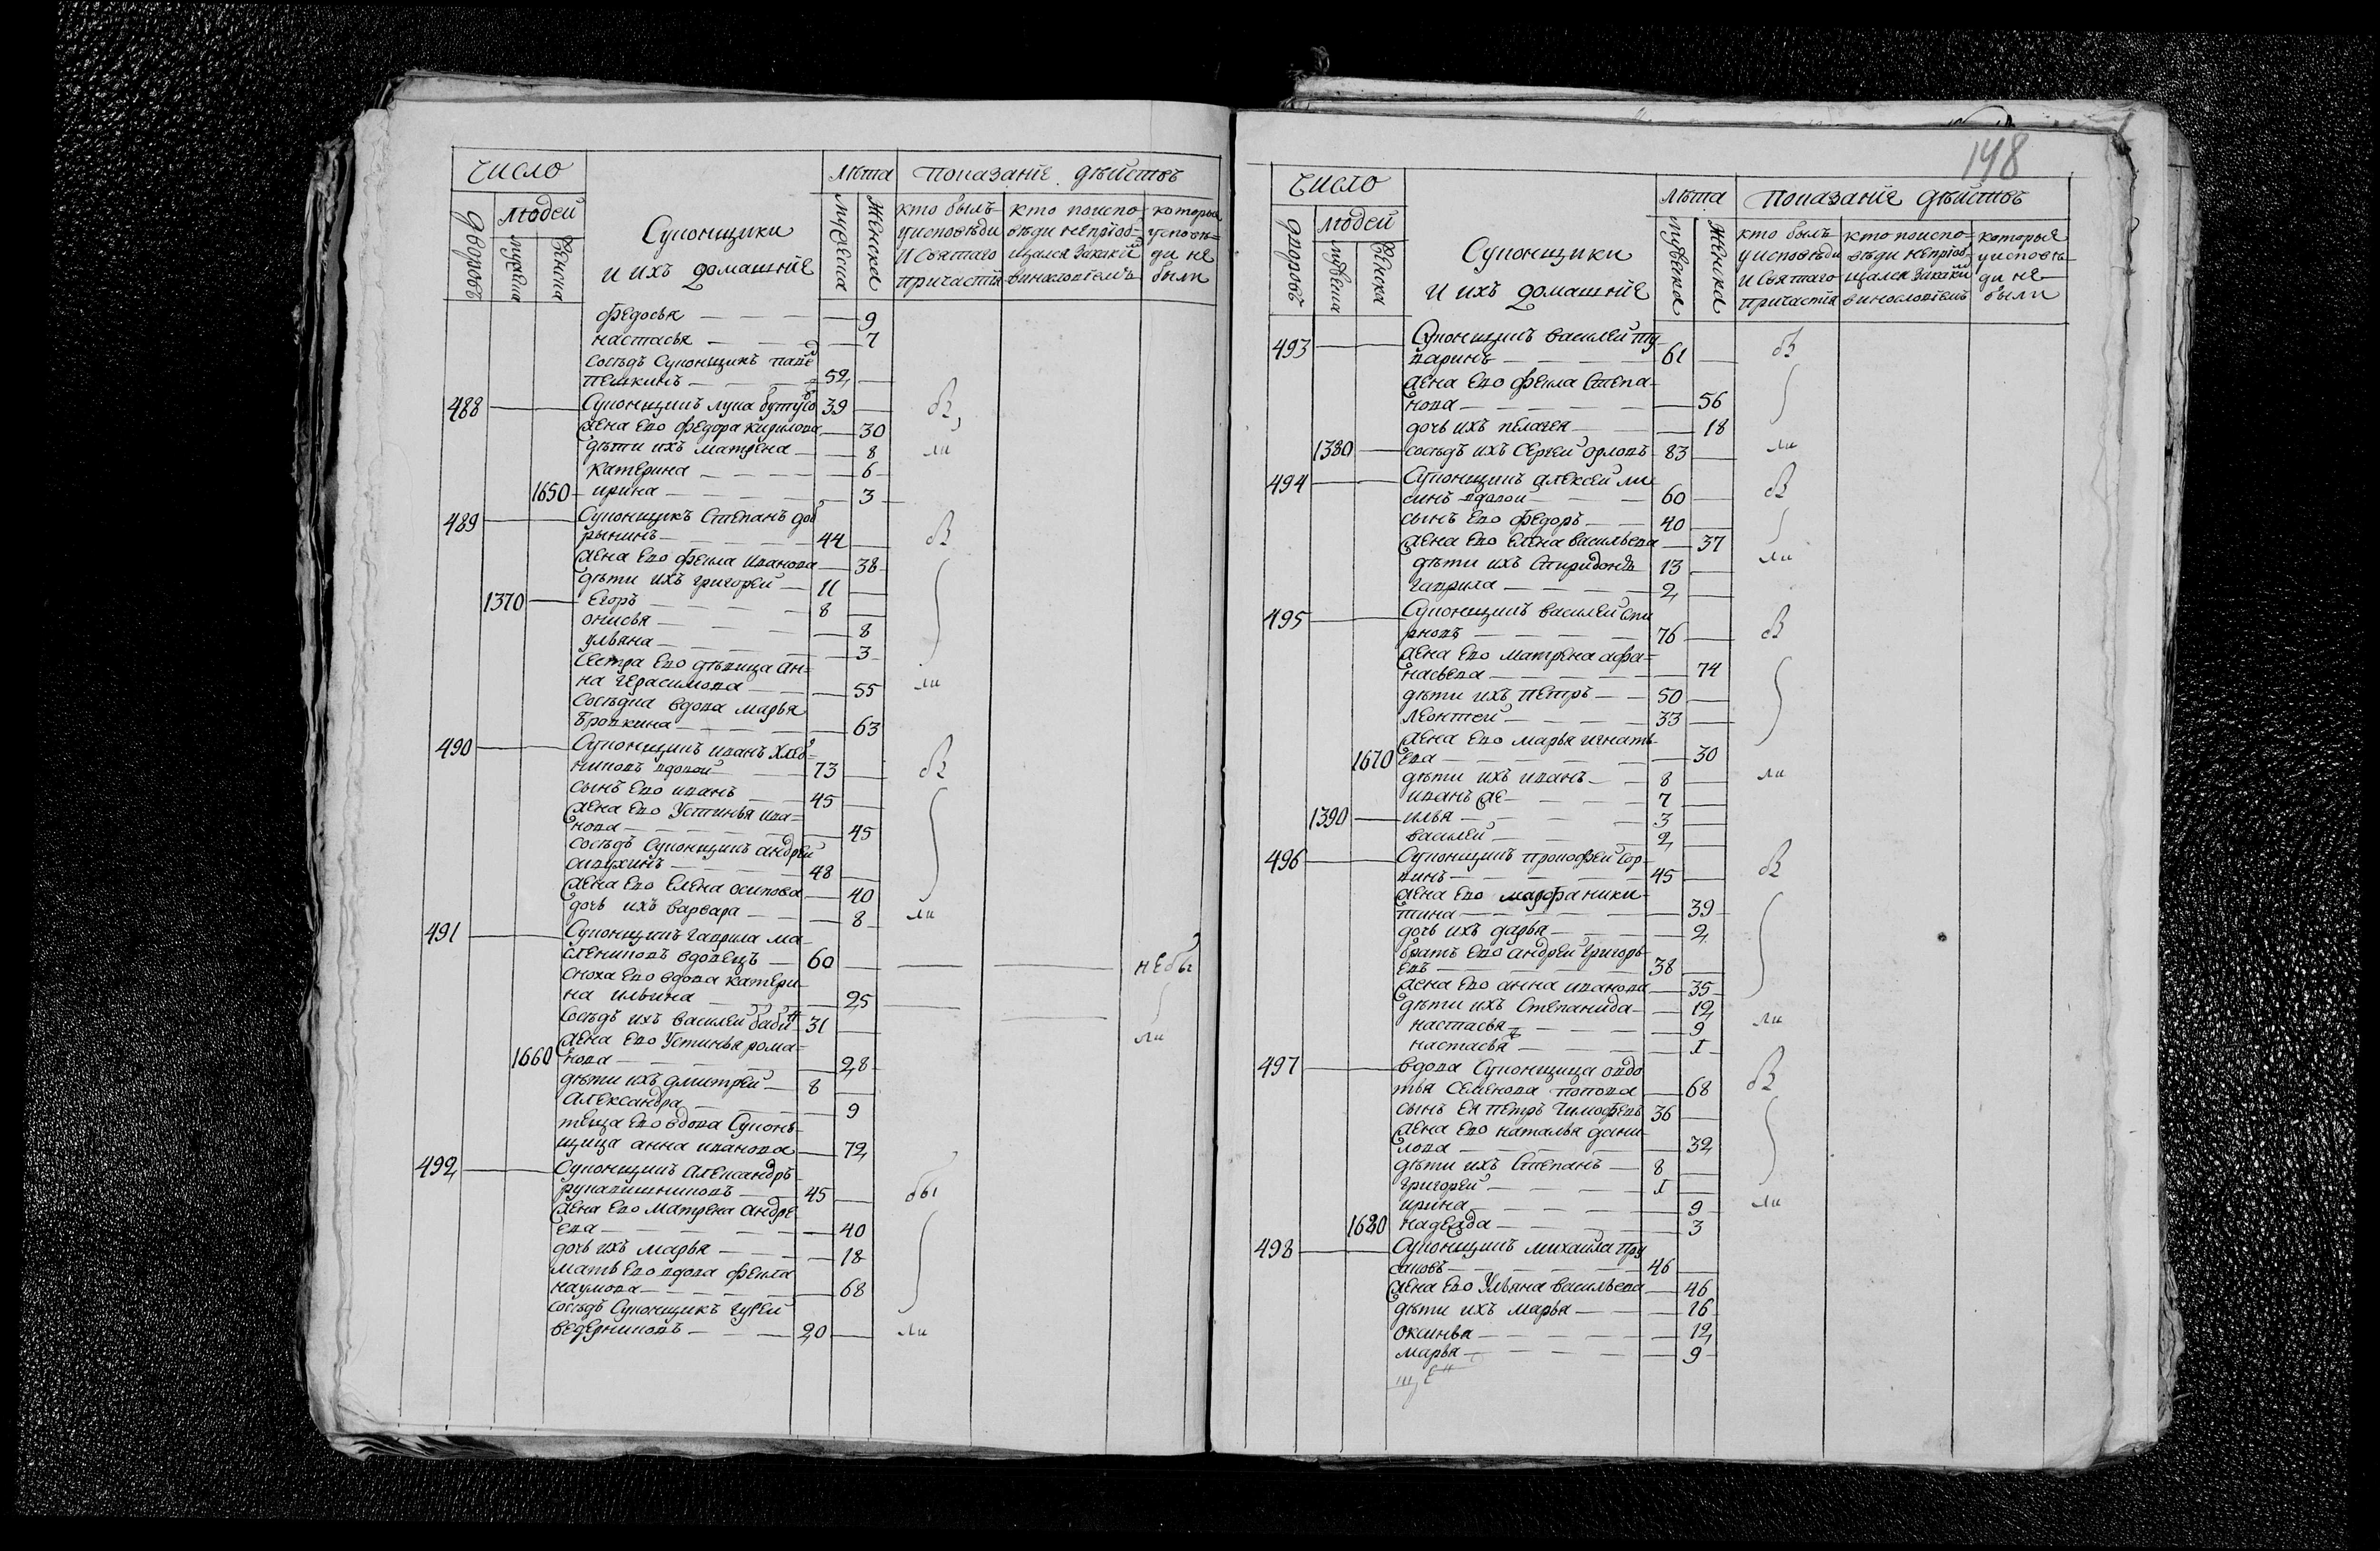 число
Лѣта показанїе дѣйствъ
дворовъ людей мужеска женска
Суконщики
и ихъ домашнїе
мужеска женска
кто былъ кто поиспо- которыя
уисповѣди вѣди непрїоб- уисповѣ-
и святаго щался закаки ди не
причастїя винасловїемъ были
федосья 9
настасья 7
сосѣдъ Суконщикъ
пешкинъ 52
488 Суконщикъ лука 39
жена ево федора кирилова 30
дѣти ихъ матрена 8 ли
катерина 6
1650 ирина 3
489 Суконщикъ Степанъ доб
рынинъ 44
жена ево фекла иванова 38
дѣти ихъ григорей 11
1370 Егоръ 8
онисья 8
ульяна 3
Сестра ево дѣвица Ан-
на герасимова 55 ли
Сосѣдка вдова марья
бровкина 63
490 Суконщикъ иванъ хлѣб-
никовъ вдовой 73
сынъ ево иванъ 45
жена ево Устинья ива-
нова 45
сосѣдъ Суконщикъ андрей
48
жена ево Елена осипова 40
дочь ихъ варвара 8 ли
491 Суконщикъ гаврила ма-
слениковъ вдовецъ 60 небы
сноха ево вдова катери-
на ильина 25
Сосѣдъ ихъ василей 31
жена ево Устинья рома- ли
1660 нова 28
дѣти ихъ дмитрей 8
Александра 9
теща ево вдова Суконь-
щица анна иванова 72
492 Суконщикъ Александръ
рукавишниковъ 45 бы
жена ево матрена андре
ева 40
дочь ихъ марья 18
мать ево вдова фекла
наумова 68
сосѣдъ Суконщикъ гурей
ведерниковъ 20 ли
148
число
Лѣта показанїе дѣйствъ
дворовъ людей мужеска женска
Суконщики
и ихъ домашнїе
мужеска женска
кто былъ кто поиспо- которыя
уисповѣди вѣди непрїоб- уисповѣ-
и святаго щался закаки ди не-
причастїя винословїемъ были
493 Суконщикъ василей
61
жена ево фекла степа-
нова 56
дочь ихъ пелагея 18
1380 сосѣдъ ихъ Сергей орловъ 83 ли
494 Суконщикъ алексей ли
синъ вдовой 60
сынъ ево федоръ 40
жена ево Елена васильева 37
дѣти ихъ Спиридонъ 13 ли
гаврила 2
495 Суконщикъ василей
76
жена ево матрена афа-
насьева 74
дѣти ихъ петръ 50
леонтей 33
жена ево марья игнать-
1670 ева 30
дѣти ихъ иванъ 8 ли
иванъ же 7
1390 илья 3
василей 2
496 Суконщикъ прокофей гор-
кинъ 45
жена ево марфа ники-
тина 39
дочь ихъ дарья 2
братъ ево андрей григорь
евъ 38
жена ево анна иванова 35
дѣти ихъ Степанида 12
настасья 9 ли
настасья I
497 вдова Суконщица овдо
тья Семенова попова 68
сынъ ея петръ тимофеевъ 36
жена ево наталья дани-
лова 32
дѣти ихъ Степанъ 8
григорей I
ирина 9 ли
1680 надежда 3
498 Суконщикъ михайла пру
саковъ 46
жена ево Ульяна васильева 46
дѣти ихъ марья 16
оксинья 12
марья 9